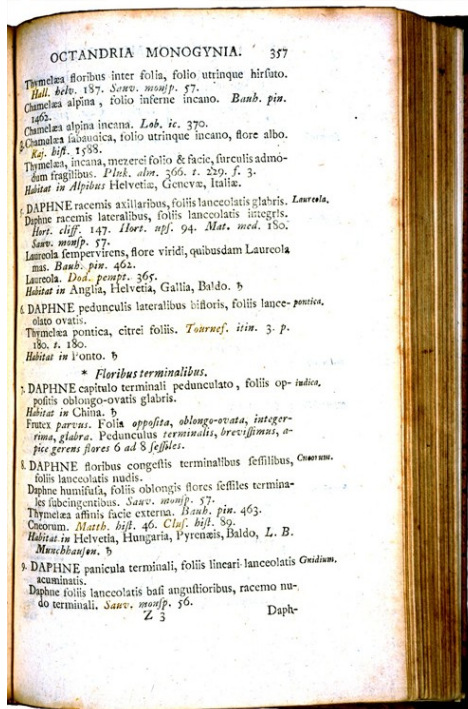 OCTANDRIA MONOGYNIA. 357
Thymelæa floribus inter folia, folio utrinque hirsuto.
Hall. helv. 187. Sauv. monsp. 57.
Chamelæa alpina, folio inferne incano. Bauh. pin.
1462.
Chamelæa alpina incana. Lob. ic. 370.
Chamelæa sabaudica, folio utrinque incano, flore albo.
Raj. hist. 1588.
Thymelæa, incana, mezerei folio & facie, surculis admo-
dum fragilibus. Pluk. alm. 366. t. 229. f. 3.
Habitat in Alpibus Helvetiæ, Genevæ, Italiæ.
5. DAPHNE racemis axillaribus, foliis lanceolatis glabris. Laureola.
Daphne racemis lateralibus, foliis lanceolatis integris.
Hort. cliff. 147. Hort. ups. 94. Mat. med. 180.
Sauv. monsp. 57.
Laureola sempervirens, flore viridi, quibusdam Laureola
mas. Bauh. pin. 462.
Laureola. Dod. pempt. 365.
Habitat in Anglia, Helvetia, Gallia, Baldo. ♄
6. DAPHNE pedunculis lateralibus bifloris, foliis lance- pontica.
olato ovatis.
Thymelæa pontica, citrei foliis. Tournef. itin. 3. p.
180. t. 180.
Habitat in Ponto. ♄
* Floribus terminalibus.
7. DAPHNE capitulo terminali pedunculato, foliis op- indica.
positis oblongo-ovatis glabris.
Habitat in China. ♄
Frutex parvus. Folia opposita, oblongo-ovata, integer-
rima, glabra. Pedunculus terminalis, brevissimus, a-
pice gerens flores 6 ad 8 sessiles.
8. DAPHNE floribus congestis terminalibus sessilibus, Cneorum.
foliis lanceolatis nudis.
Daphne humifusa, foliis oblongis flores sessiles termina-
les subcingentibus. Sauv. monsp. 57.
Thymelæa affinis facie externa. Bauh. pin. 463.
Cneorum. Matth. hist. 46. Clus. hist. 89.
Habitat in Helvetia, Hungaria, Pyrenæis, Baldo, L. B.
Munchhausen. ♄
9. DAPHNE panicula terminali, foliis lineari-lanceolatis Gnidium.
acuminatis.
Daphne foliis lanceolatis basi angustioribus, racemo nu-
do terminali. Sauv. monsp. 56.
Z 3 Daph-